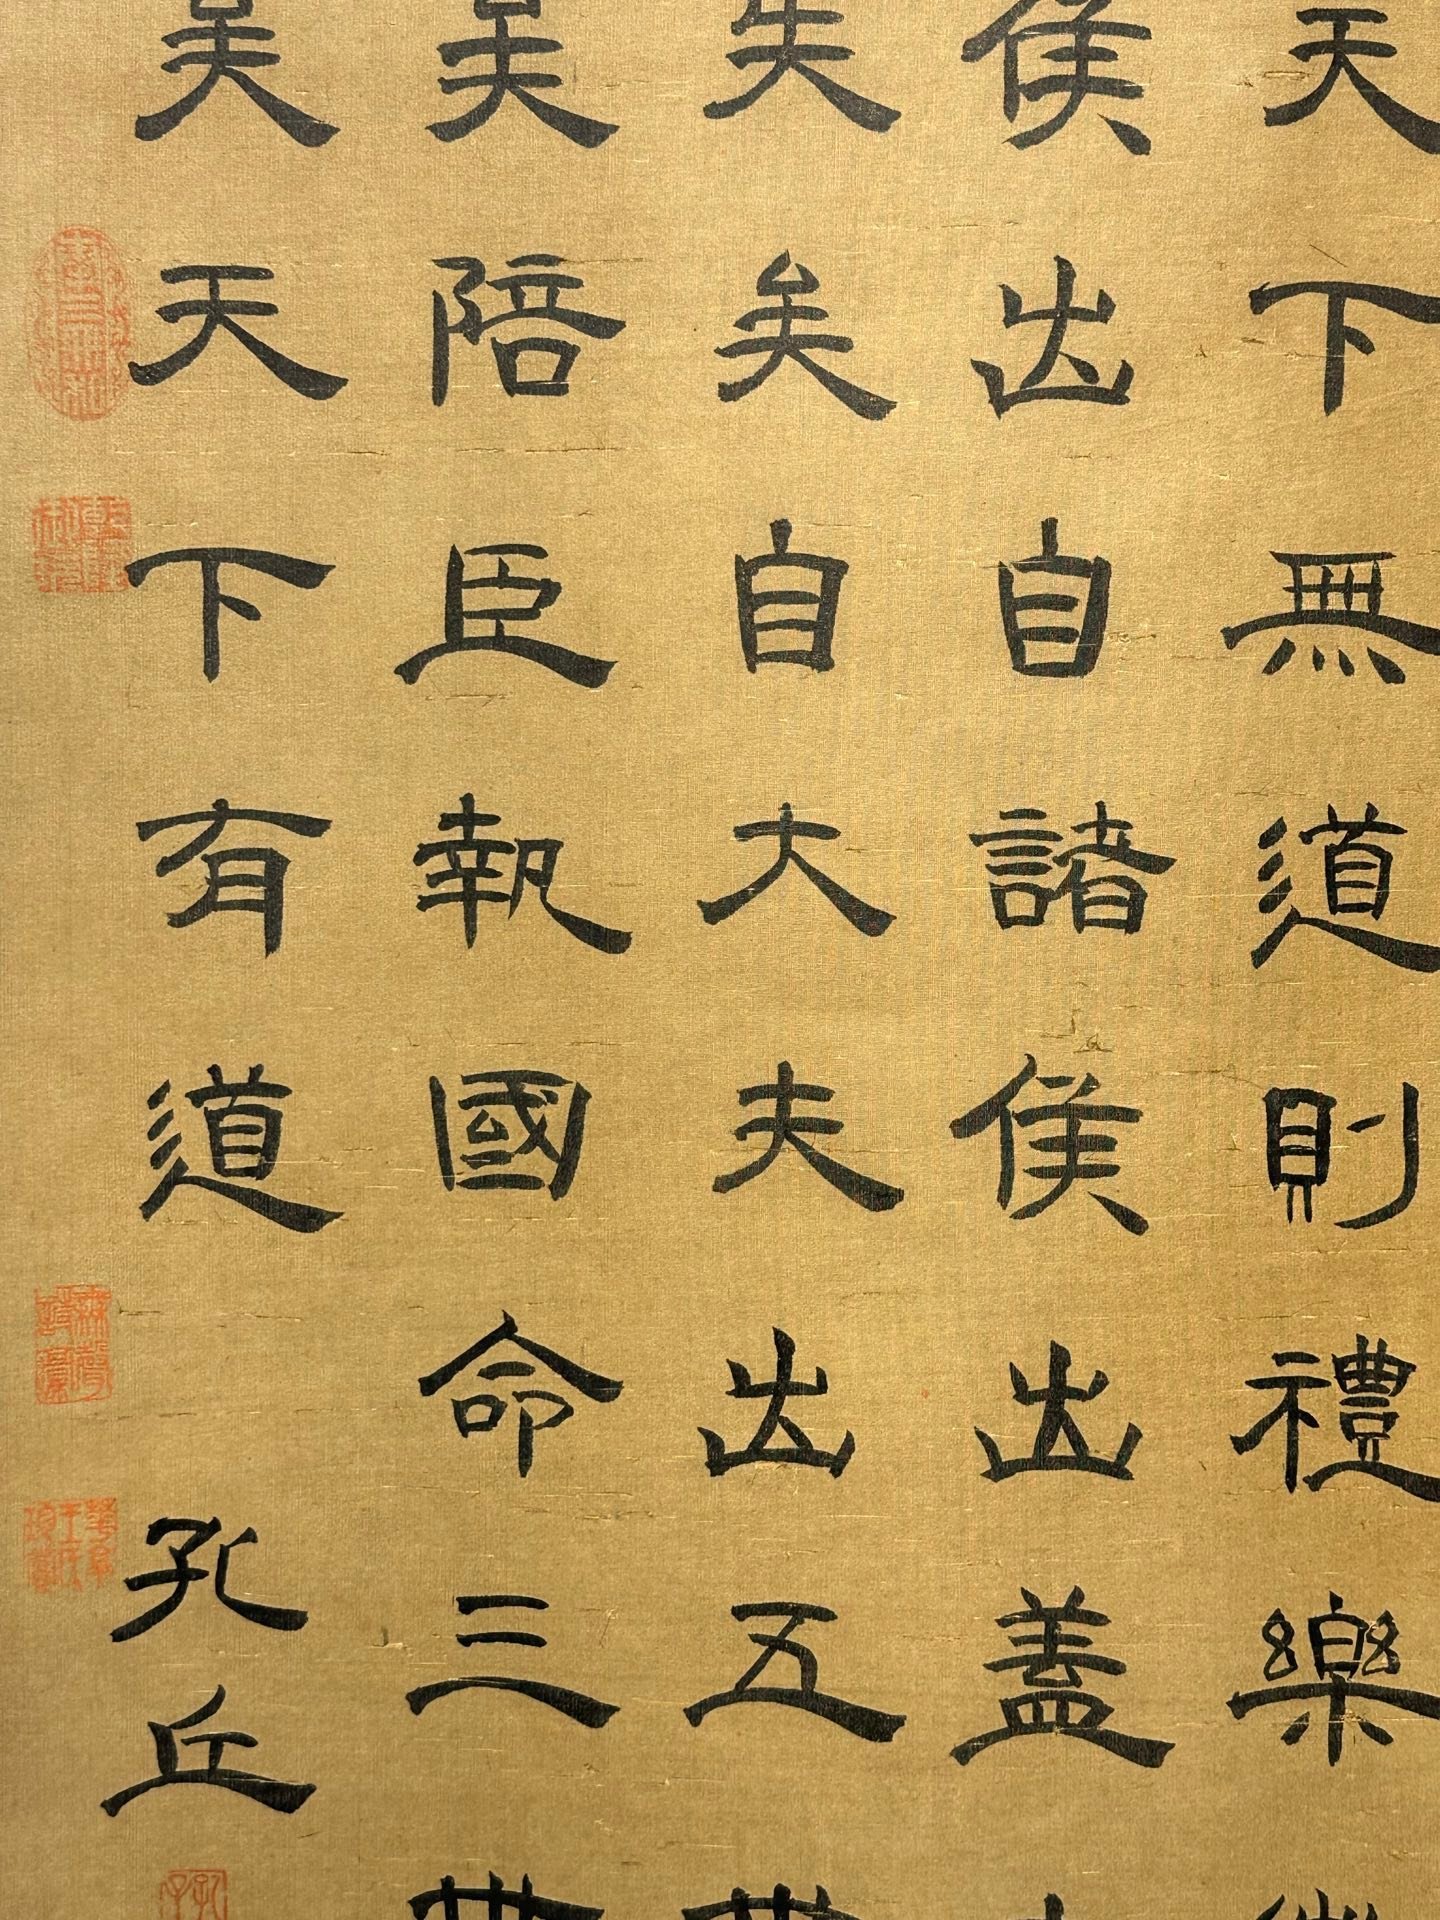 天下無道則禮樂
侯出自諸侯出蓋
失矣自大夫出五
矣陪臣執國命三
矣天下有道
孔丘